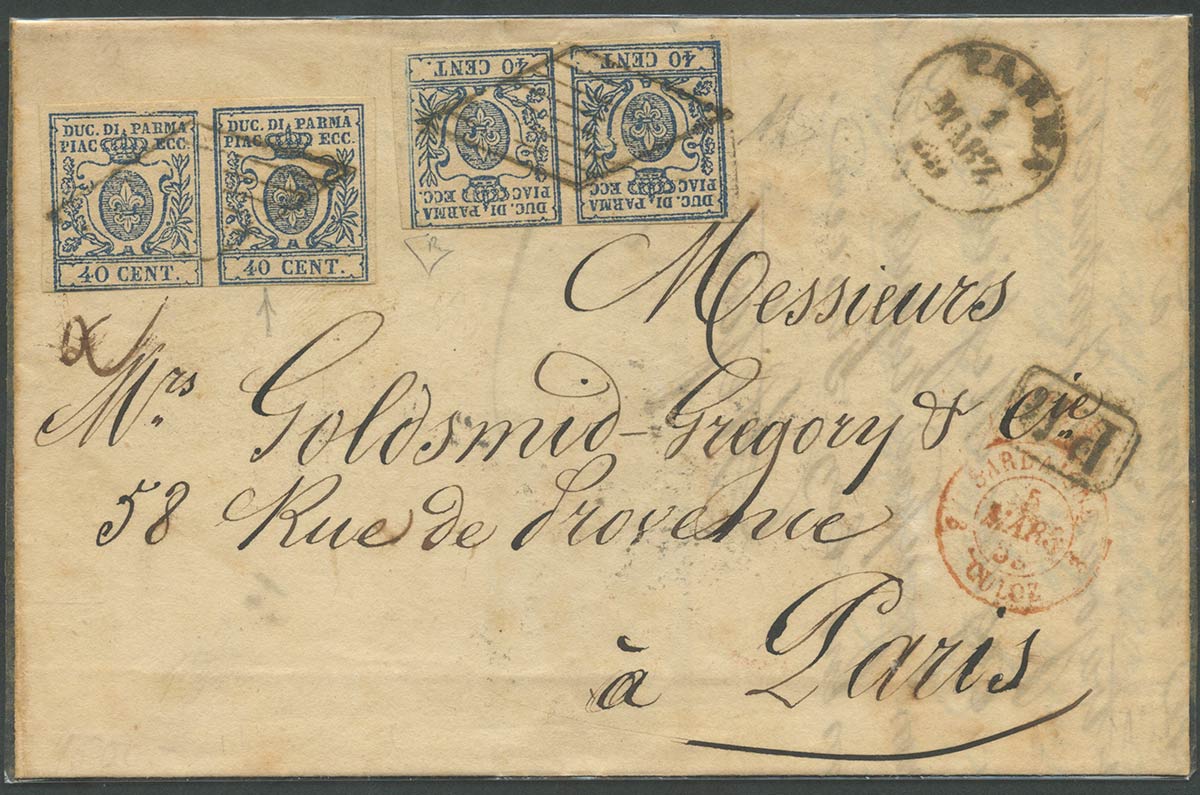 DUC. DI PARMA
PIAC ECC.
40 CENT.
DUC. DI PARMA
PIAC ECC.
40 CENT.
DUC. DI PARMA
PIAC ECC.
40 CENT.
DUC. DI PARMA
PIAC ECC.
40 CENT.
PARMA
1
MARZ.
58
R
Messieurs
Mrs Goldsmid-Gregory & Cie
58 Rue de Provence
à Paris
P.D.
SARDAIGNE
5
MARS
58
CULOZ